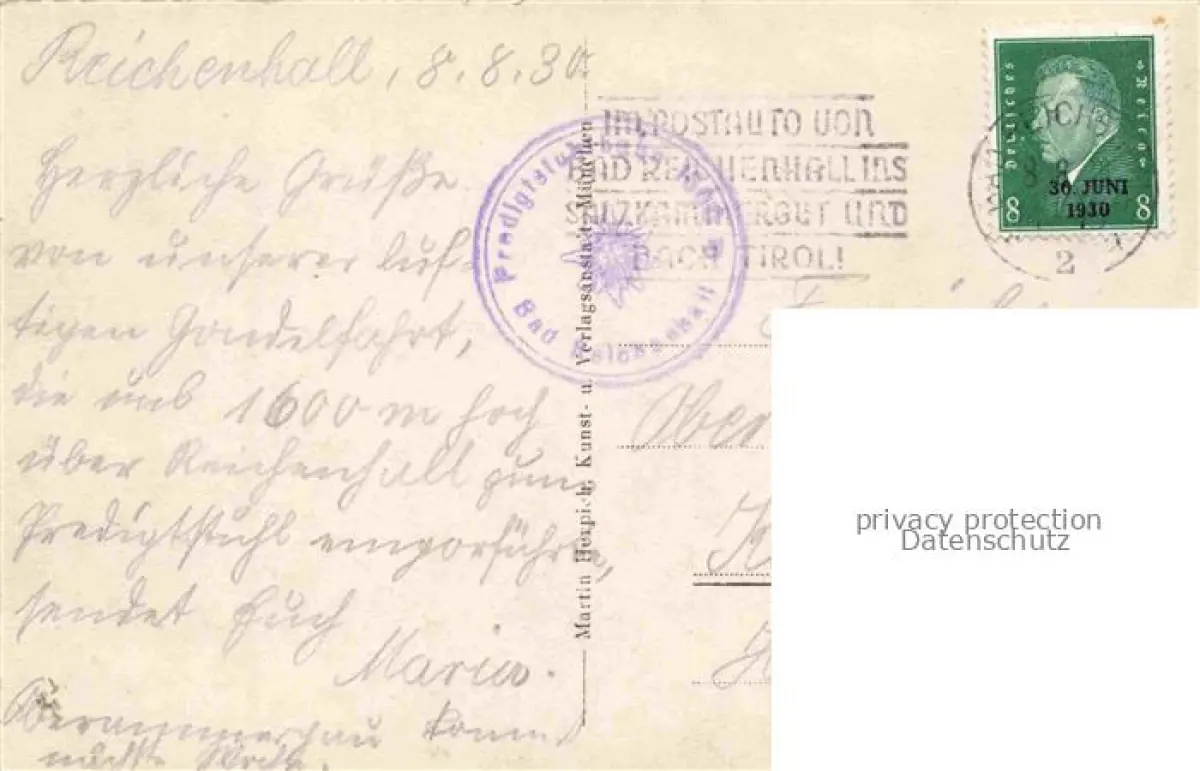 Reichenhall, 8. 8. 30.
Herzliche Grüße
von unserer luf-
tigen Gondelfahrt,
die uns 1600 m hoch
über Reichenhall zum
Predigtstuhl emporführt,
sendet Euch
Maria.
Oberammergau kommt
nächste Woche.
Martin Herpich, Kunst- u. Verlagsanstalt, München
Predigtstuhl
Bad Reichenhall
IM POSTAUTO VON
BAD REICHENHALL INS
SALZKAMMERGUT UND
NACH TIROL!
Deutsches Reich
30. JUNI
1930
8 8
2
Ober
privacy protection
Datenschutz